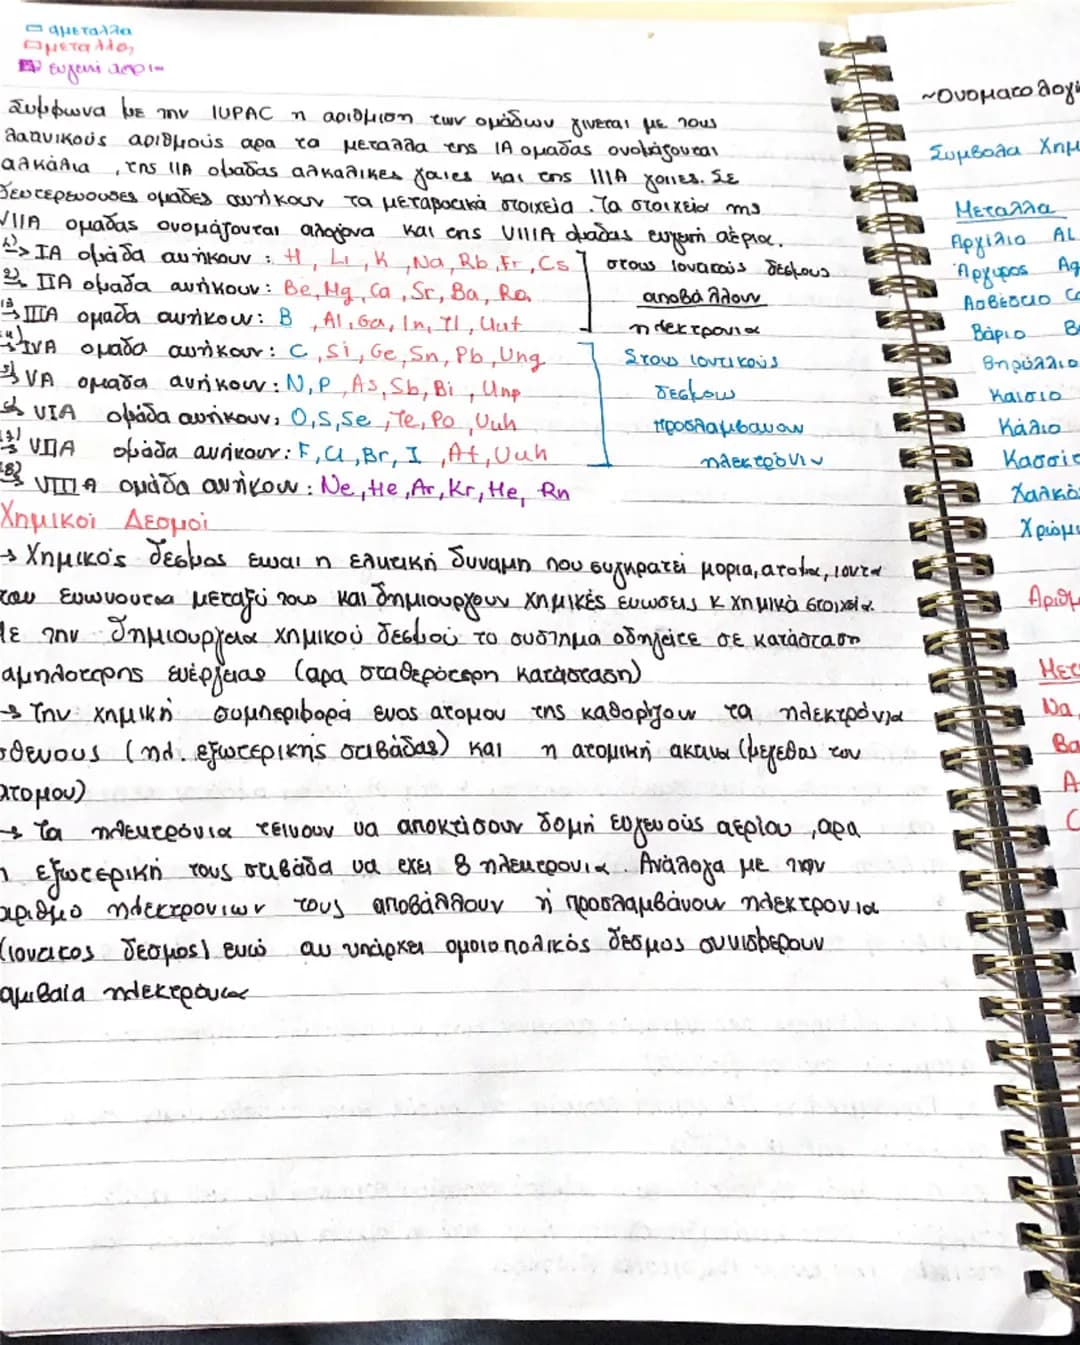 αμεταλλα
μεταλλο
ευγενή αερια
Συμφωνα με την IUPAC η αριθμιση των ομάδων γινεται με τους
λατινικούς αριθμούς αρα τα μεταλλα της IA ομαδας ονομάζονται
αλκάλια , της IIA ομαδας αλκαλικες γαιες και της IIIA γαιες. Σε
δευτερευουσες ομαδες ανήκουν τα μεταβατικά στοιχεία. Τα στοιχεία της
VIIA ομαδας ονομάζονται αλογόνα και της VIIIA ομαδας ευγενή αέρια.
1) → IA ομάδα ανήκουν : H , Li , K , Na , Rb , Fr , Cs
στους ιονατούς δεσμους
2) → IIA ομαδα ανήκουν : Be, Mg, Ca , Sr, Ba, Ra
αποβάλλουν
3) → IIIA ομαδα ανηκουν: B , Al, Ga, In, Tl, Uut
ηλεκτρονια
4) → IVA ομάδα ανηκουν : C , Si, Ge, Sn, Pb, Ung
Στους ιοντικούς
5) → VA ομαδα ανήκουν : N, P , As, Sb, Bi , Unp
δεσμους
6) → VIA ομάδα ανήκουν: O, S, Se , Te, Po , Uuh
προσλαμβανουν
7) → VIIA ομάδα ανήκουν: F, Cl , Br, I , At, Uuh
ηλεκτρόνιν
8) → VIIIA ομάδα ανήκουν : Ne , He , Ar, Kr, He, Rn
Χημικοί Δεσμοί
→ Χημικός δεσμος ειναι η ελκτική δυναμη που συγκρατεί μορια, ατομα, ιοντα
που ενωνονται μεταξύ τους και δημιουργουν χημικές ενωσεις κ χημικά στοιχεία.
Με την δημιουργεια χημικού δεσμού το συστημα οδηγείτε σε κατάσταση
χαμηλοτερης ενέργειας (αρα σταθερότερη κατάσταση)
→ Την χημική συμπεριφορά ενος ατομου της καθορίζουν τα ηλεκτρόνια
σθενους (ηλ. εξωτερικής στιβάδας) και η ατομική ακτινα (μεγεθος του
ατομου)
→ Τα ηλεκτρόνια τεινουν να αποκτίσουν δομή ευγενούς αερίου , αρα
η εξωτερική τους στιβάδα να εχει 8 ηλεκτρονια. Ανάλογα με τον
αριθμό ηλεκτρονιων τους αποβάλλουν ή προσλαμβάνουν ηλεκτρονια
(ιονατος δεσμός) ενώ αν υπάρχει ομοιοπολικός δεσμος συνισφερουν
αμιβαία ηλεκτρόνια
~Ονοματολογί
Συμβολα Χημ
Μεταλλα
Αργίλιο Al
Άργυρος Ag
Ασβέστιο Ca
Βάριο B
Βηρύλλιο
Καισιο
Κάλιο
Κασσίτ
Χαλκό
Χρώμι
Αριθμ
Μετ
Na,
Ba
A
C